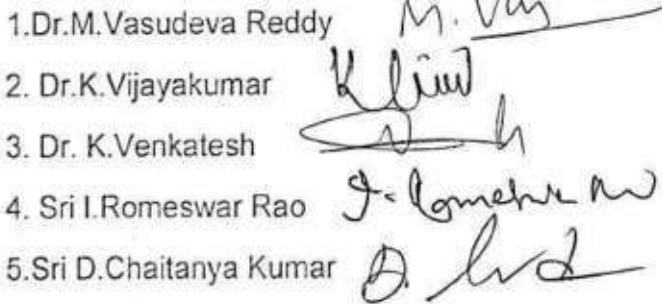 1.Dr.M.Vasudeva Reddy M. Vas
2. Dr.K.Vijayakumar
3. Dr. K.Venkatesh
4. Sri I.Romeswar Rao I. Romeswar Rao
5.Sri D.Chaitanya Kumar D.